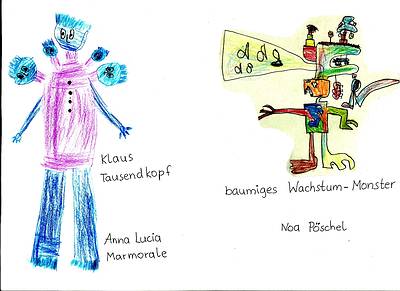 Klaus
Tausendkopf
Anna Lucia
Marmorale
baumiges Wachstum-Monster
Noa Pöschel